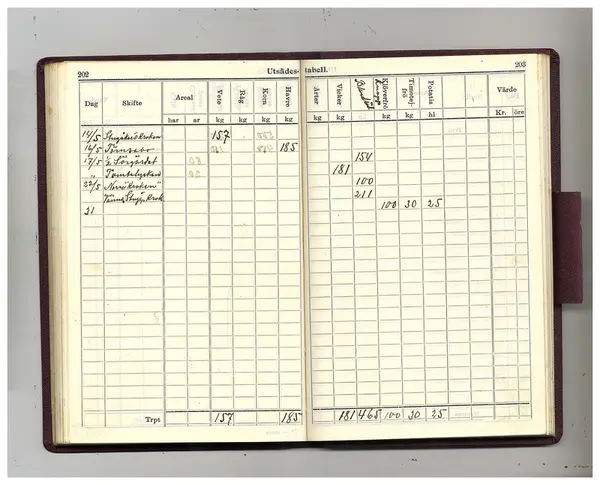 202
Utsädes-tabell.
203
Dag Skifte Areal Vete Råg Korn Havre Ärter Vicker Blandsäd Klöverfrö Timotej-frö Potatis Värde
har ar kg kg kg kg kg kg kg kg kg hl Kr. öre
14/5 157
16/5 185
17/5 1/2 Sörgärdet 154
" 181
22/5 Norr kroken" 100
211
31 100 30 25
Trpt 157 185 181 465 100 30 25